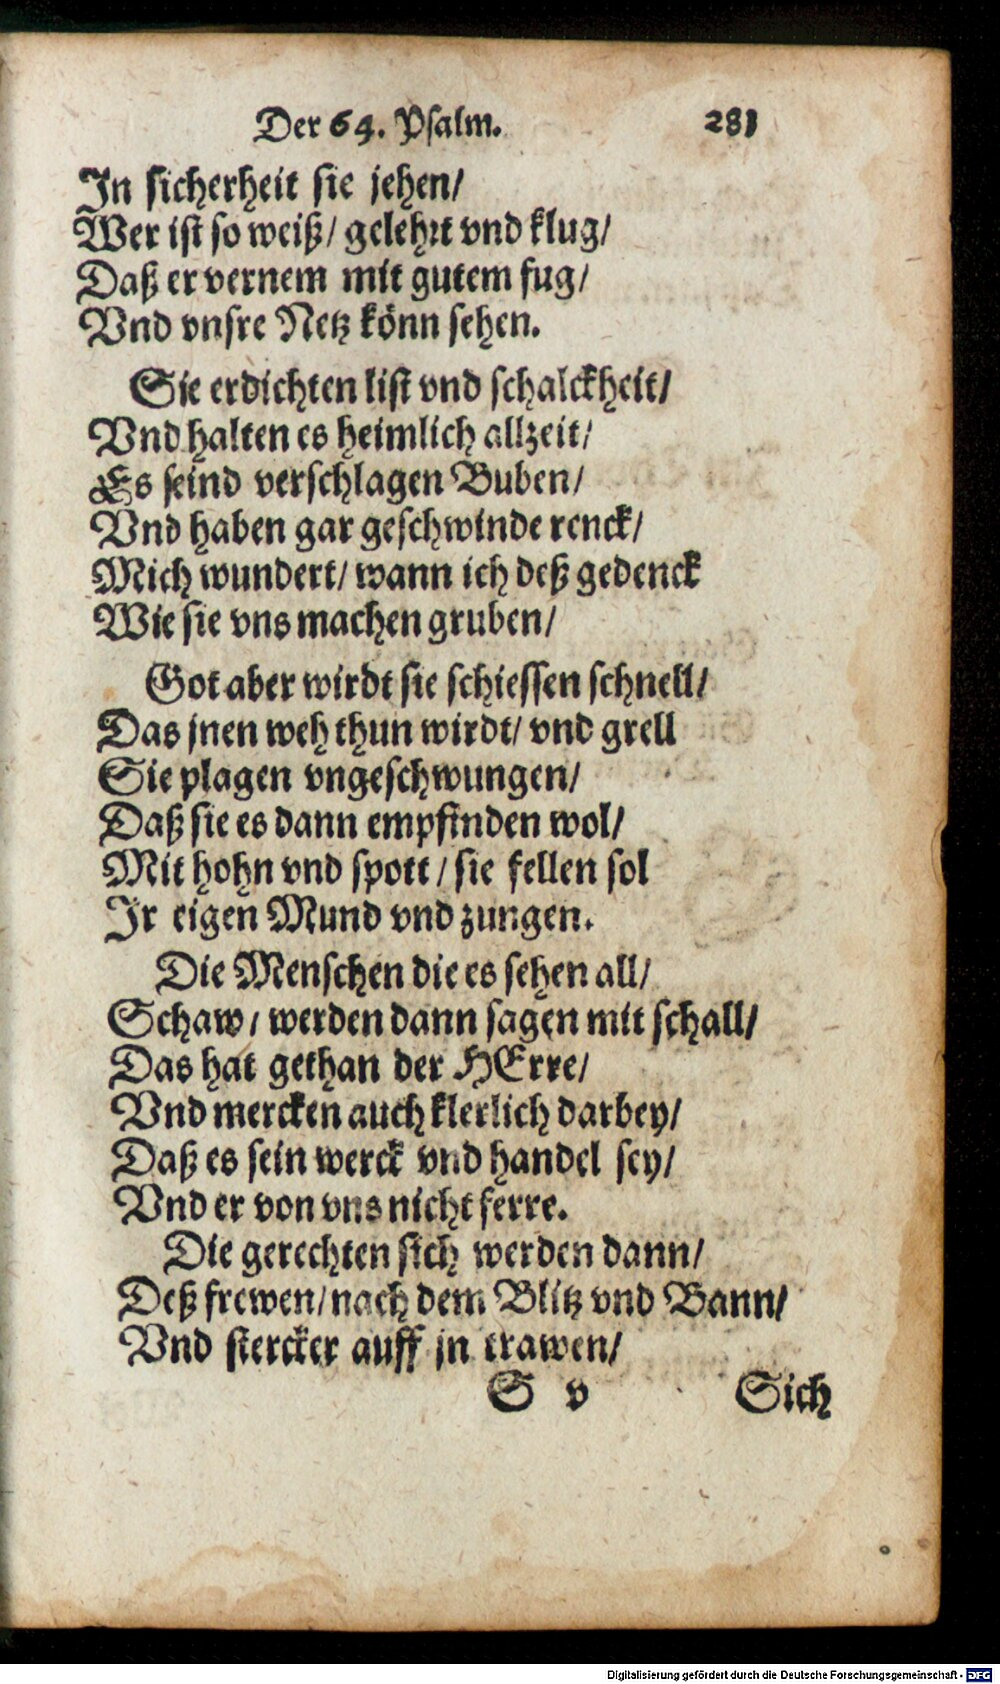 Der 64. Psalm. 281
In sicherheit sie jehen/
Wer ist so weiß/ gelehrt vnd klug/
Daß er vernem mit gutem fug/
Vnd vnsre Netz könn sehen.
Sie erdichten list vnd schalckheit/
Vnd halten es heimlich allzeit/
Es seind verschlagen Buben/
Vnd haben gar geschwinde renck/
Mich wundert/ wann ich deß gedenck
Wie sie vns machen gruben/
Got aber wirdt sie schiessen schnell/
Das jnen weh thun wirdt/ vnd grell
Sie plagen vngeschwungen/
Daß sie es dann empfinden wol/
Mit hohn vnd spott/ sie fellen sol
Ir eigen Mund vnd zungen.
Die Menschen die es sehen all/
Schaw/ werden dann sagen mit schall/
Das hat gethan der HErre/
Vnd mercken auch klerlich darbey/
Daß es sein werck vnd handel sey/
Vnd er von vns nicht ferre.
Die gerechten sich werden dann/
Deß frewen/ nach dem Blitz vnd Bann/
Vnd stercker auff jn trawen/
S v Sich
Digitalisierung gefördert durch die Deutsche Forschungsgemeinschaft - DFG